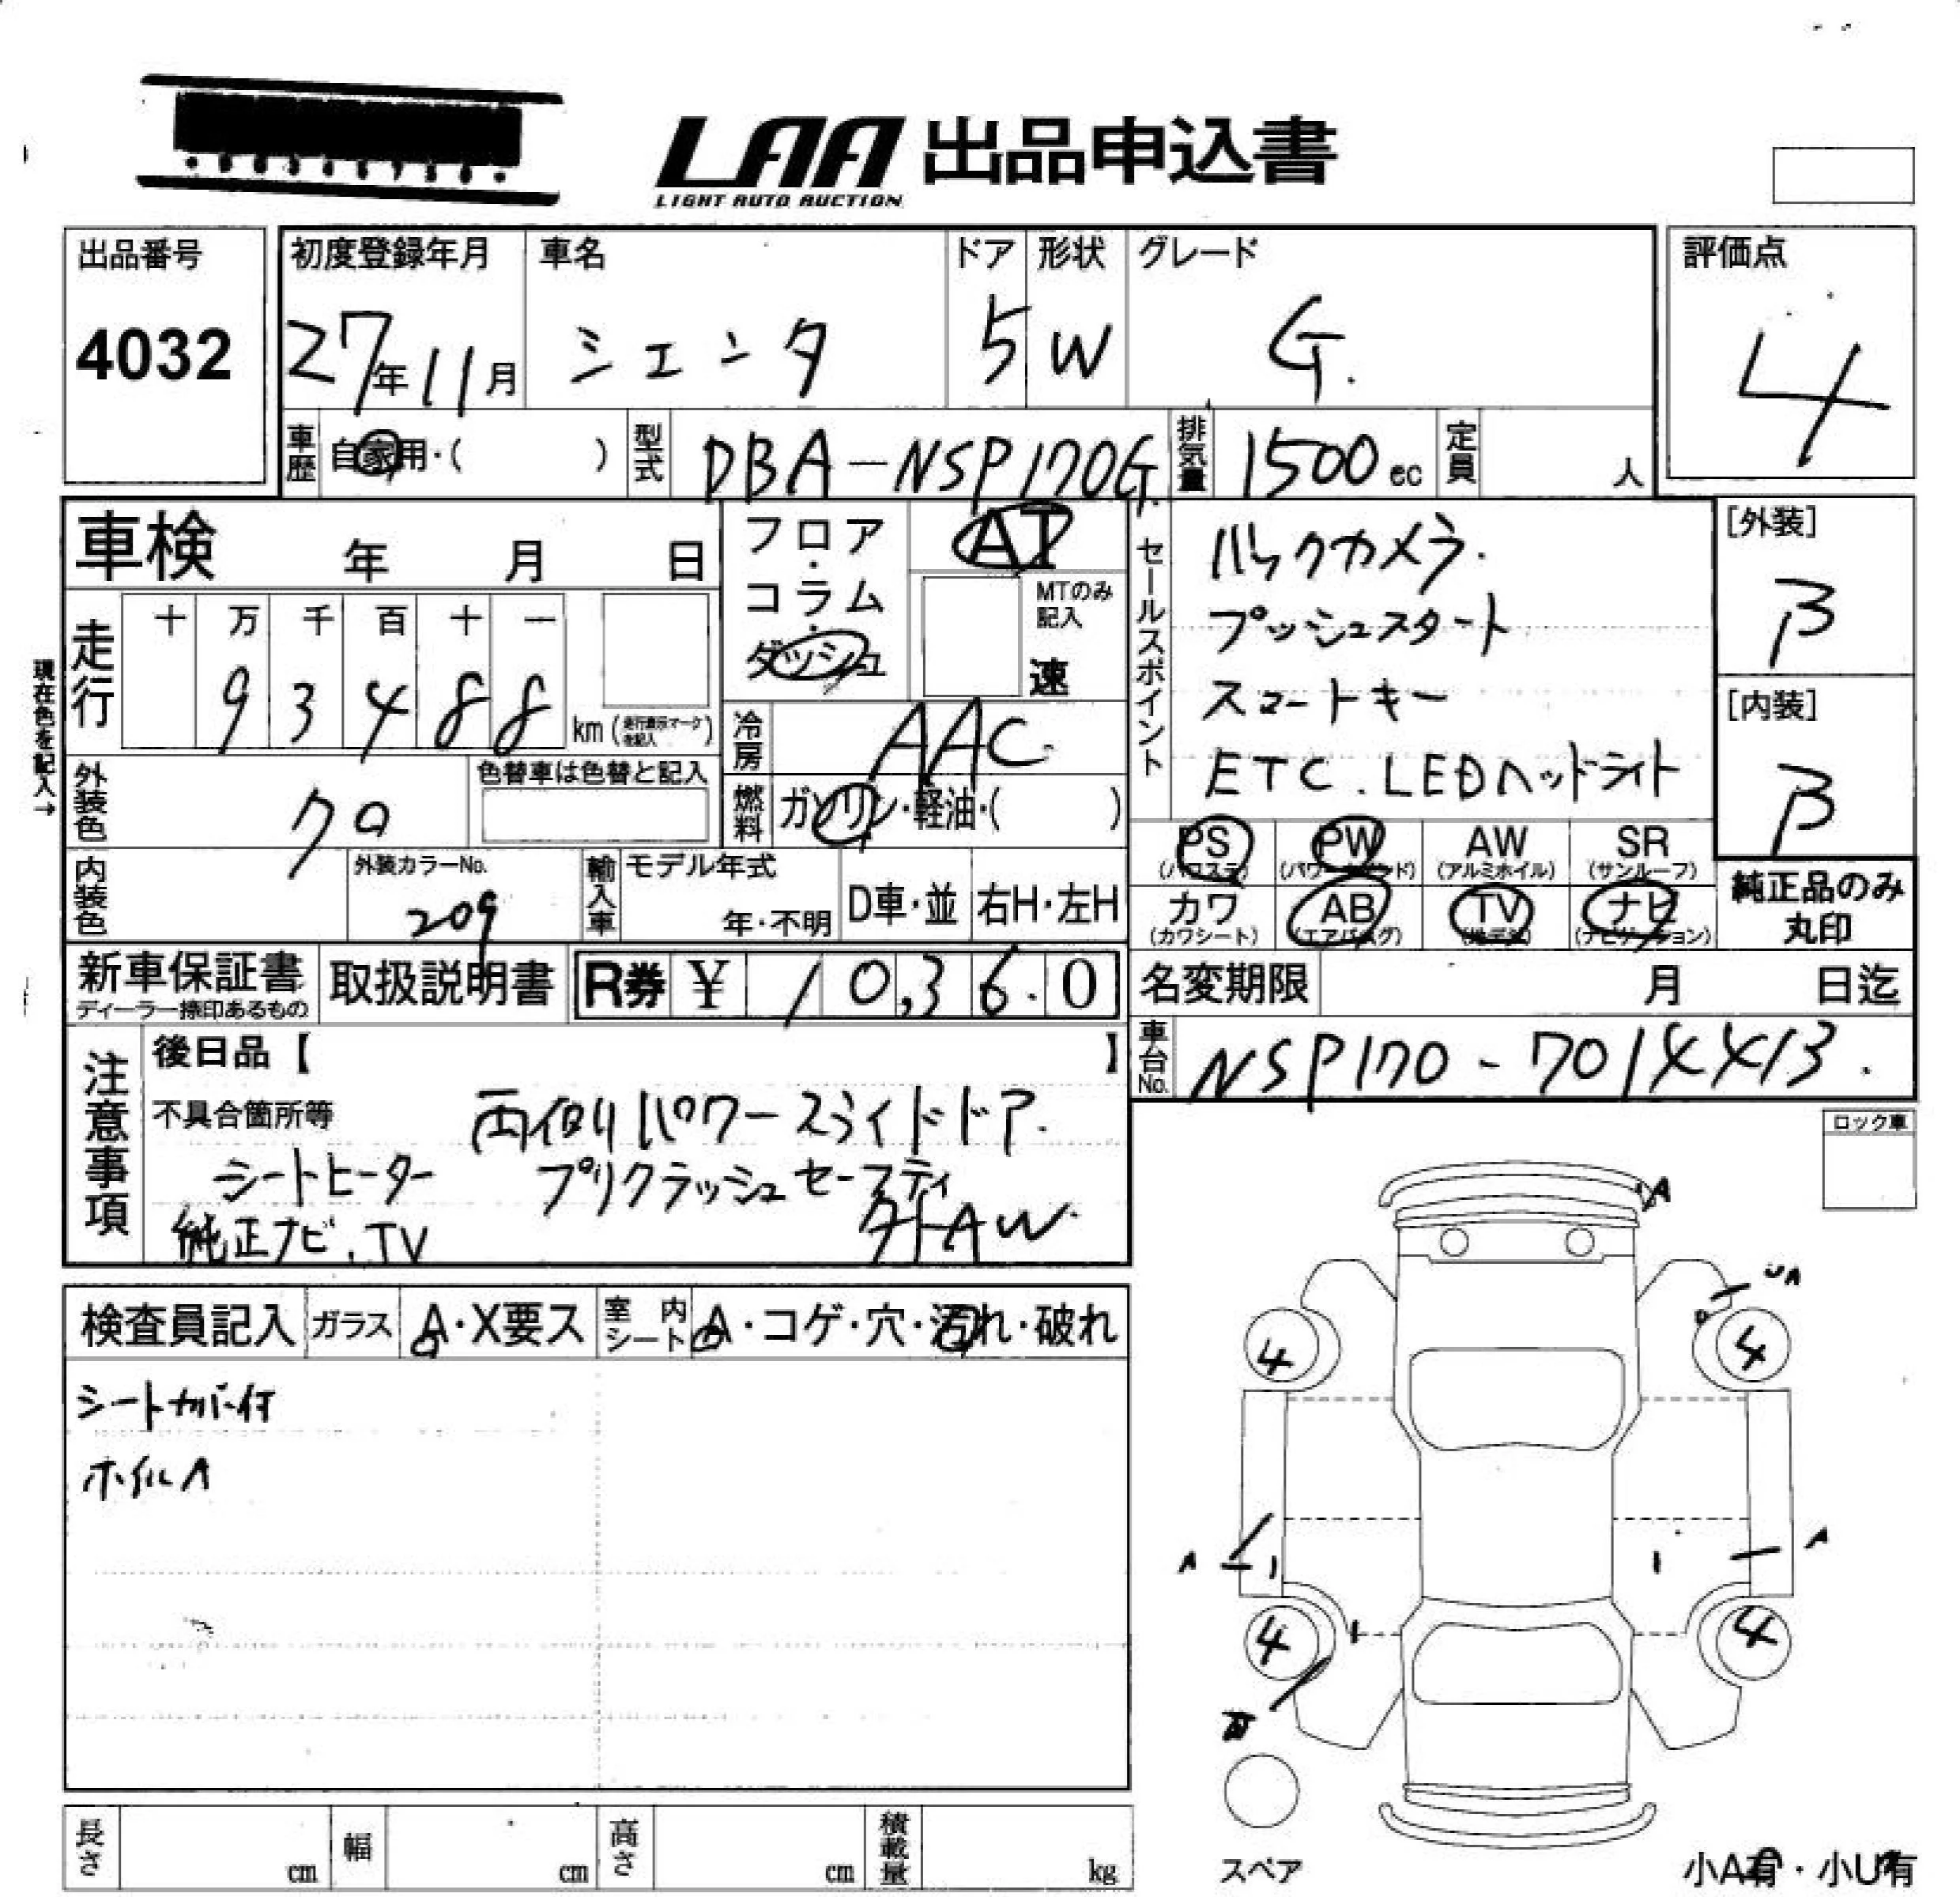 LAA 出品申込書
LIGHT AUTO AUCTION
出品番号 初度登録年月 車名 ドア 形状 グレード 評価点
4032 27年11月 シエンタ 5 W G. 4
車歴 自家用・( ) 型式 DBA-NSP170G 排気量 1500cc 定員 人
車検 年 月 日 フロア・コラム・ダッシュ AT
MTのみ記入 速
セールスポイント バックカメラ.
プッシュスタート
スマートキー
ETC.LEDヘッドライト
[外装] B
[内装] B
現在色を記入→
走行 十 万 千 百 十 一
9 3 4 8 8 km (走行表示マークを記入)
冷房 AAC
外装色 クロ 色替車は色替と記入
燃料 ガソリン・軽油・( )
PS AW SR PW
(パワステ) (パワーウインド) (アルミホイル) (サンルーフ)
内装色 外装カラーNo. 209 輸入車 モデル年式 年・不明 D車・並 右H・左H
カワ AB TV ナビ
(カワシート) (エアバッグ) (テレビ) (ナビゲーション)
純正品のみ丸印
新車保証書 取扱説明書 R券 ¥ 10,360 名変期限 月 日迄
ディーラー捺印あるもの
車台No. NSP170-7014413.
注意事項 後日品【 】
不具合箇所等 両側パワースライドドア.
シートヒーター プリクラッシュセーフティ
純正ナビ.TV 外AW
ロック車
A
UA
検査員記入 ガラス A・X要ス 室内シート A・コゲ・穴・汚れ・破れ
シートカバー付
ホイルA
4 4
A A
4 4
スペア
長さ cm 幅 cm 高さ cm 積載量 kg
小A有・小U有